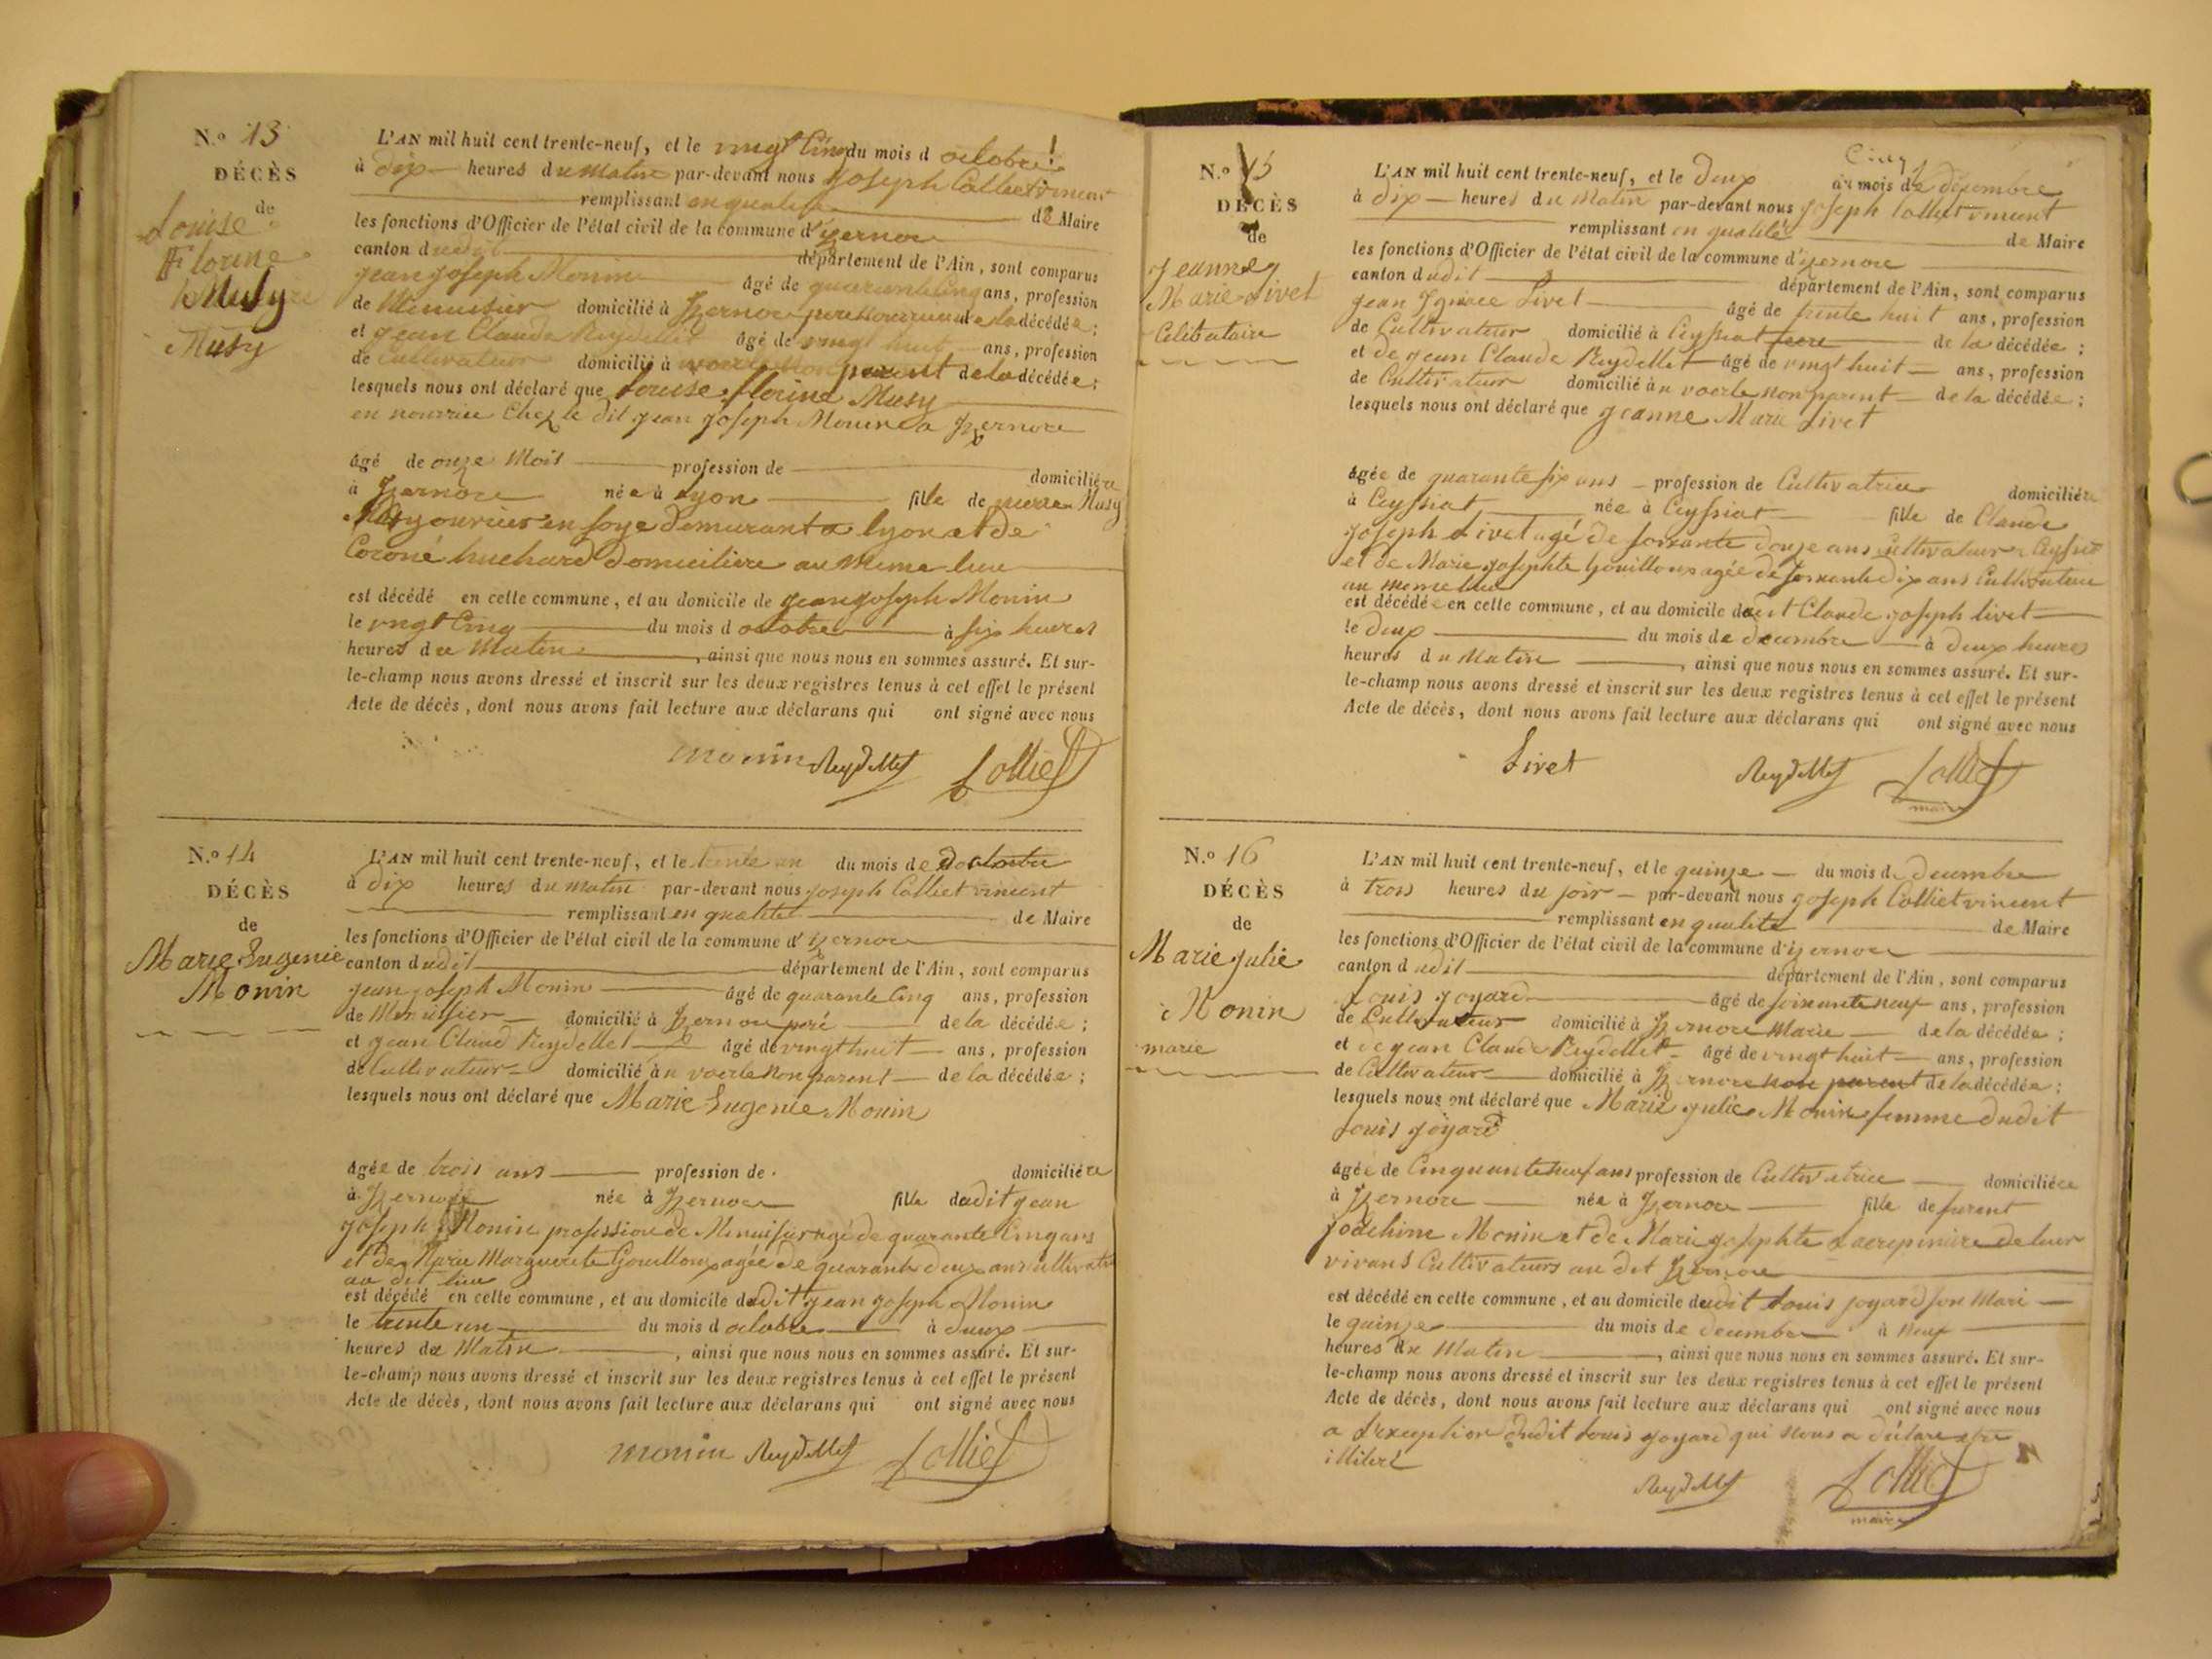 N.º 13
DÉCÈS
de
Louise
Florine
Musy
Musy
L'AN mil huit cent trente-neuf, et le vingt Cinq du mois d octobre
à dix heures du Matin par-devant nous Joseph Colliet vincent
remplissant en qualité de Maire
les fonctions d'Officier de l'état civil de la commune d'izernore
canton dudit département de l'Ain, sont comparus
jean joseph Monin âgé de quarante Cinq ans, profession
de Menuisier domicilié à Izernore pere Nourricier de la décédée;
et jean Claude Reydellet âgé de vingt huit ans, profession
de Cultivateur domicilié à voerle non parent de la décédée;
lesquels nous ont déclaré que Louise florine Musy
en nourrice Chez le dit jean joseph Monin a Izernore
âgé de onze Mois profession de domiciliée
à Izernore née à Lyon fille de pierre Musy
Musy ouvrier en soye demeurant a lyon et de
huchard domiciliere au meme lieu
est décédé en cette commune, et au domicile de jean joseph Monin
le vingt Cinq du mois d octobre à six heures
heures du Matin, ainsi que nous nous en sommes assuré. Et sur-
le-champ nous avons dressé et inscrit sur les deux registres tenus à cet effet le présent
Acte de décès, dont nous avons fait lecture aux déclarans qui ont signé avec nous
monin Reydellet Colliet
N.º 14
DÉCÈS
de
Marie Eugenie
Monin
L'AN mil huit cent trente-neuf, et le trente un du mois de d'octobre
à dix heures du matin par-devant nous joseph Colliet vincent
remplissant en qualité de Maire
les fonctions d'Officier de l'état civil de la commune d'izernore
canton dudit département de l'Ain, sont comparus
jean joseph Monin âgé de quarante Cinq ans, profession
de Menuisier domicilié à Izernore peré de la décédée;
et jean Claud Reydellet âgé de vingt huit ans, profession
de Cultivateur domicilié à u voerle non parent de la décédée;
lesquels nous ont déclaré que Marie Eugenie Monin
âgée de trois ans profession de domiciliére
à Izernore née à Izernore fille dudit jean
joseph Monin profession de Menuisier agé de quarante Cinq ans
et de Marie Marguerite Gouilloux agée de quarante deux ans cultivatr
au dit lieu
est décédé en cette commune, et au domicile dudit jean joseph Monin
le trente un du mois d octobre à deux
heures du Matin, ainsi que nous nous en sommes assuré. Et sur-
le-champ nous avons dressé et inscrit sur les deux registres tenus à cet effet le présent
Acte de décès, dont nous avons fait lecture aux déclarans qui ont signé avec nous
monin Reydellet Colliet
N.º 15
DÉCÈS
de
jeanne
Marie Livet
Celibataire
Cinq
L'AN mil huit cent trente-neuf, et le deux du mois de décembre
à dix heures du Matin par-devant nous joseph Colliet vincent
remplissant en qualité de Maire
les fonctions d'Officier de l'état civil de la commune d'izernore
canton dudit département de l'Ain, sont comparus
jean Ignace Livet âgé de trente huit ans, profession
de Cultivateur domicilié à Ceyssiat frere de la décédée;
et de jean Claude Reydellet âgé de vingt huit ans, profession
de Cultivateur domicilié à u voerle non parent de la décédée;
lesquels nous ont déclaré que jeanne Marie Livet
âgée de quarante six ans profession de Cultivatrice domiciliére
à Ceyssiat née à Ceyssiat fille de Claude
joseph Livet agé de soixante douze ans Cultivateur a Ceyssiat
et de Marie josephte Gouilloux agée de soixante dix ans Cultivateur
au meme lieu
est décédée en cette commune, et au domicile dudit Claude joseph Livet
le deux du mois de decembre à deux heures
heures du Matin, ainsi que nous nous en sommes assuré. Et sur-
le-champ nous avons dressé et inscrit sur les deux registres tenus à cet effet le présent
Acte de décès, dont nous avons fait lecture aux déclarans qui ont signé avec nous
Livet Reydellet Colliet
maire
N.º 16
DÉCÈS
de
Marie julie
Monin
marie
L'AN mil huit cent trente-neuf, et le quinze du mois de decembre
à trois heures du soir par-devant nous joseph Colliet vincent
remplissant en qualité de Maire
les fonctions d'Officier de l'état civil de la commune d'izernore
canton dudit département de l'Ain, sont comparus
Louis joyard âgé de soixante neuf ans, profession
de Cultivateur domicilié à Izernore Marie de la décédée;
et de jean Claude Reydellet âgé de vingt huit ans, profession
de Cultivateur domicilié à Izernore non parent de la décédée;
lesquels nous ont déclaré que Marie julie Monin femme dudit
Louis joyard
âgée de Cinquante neuf ans profession de Cultivatrice domiciliée
à Izernore née à Izernore fille de furent
joachime Monin et de Marie josephte de leur
vivans Cultivateurs au dit Izernore
est décédé en cette commune, et au domicile dudit Louis joyard son Mari
le quinze du mois de decembre à neuf
heures du Matin, ainsi que nous nous en sommes assuré. Et sur-
le-champ nous avons dressé et inscrit sur les deux registres tenus à cet effet le présent
Acte de décès, dont nous avons fait lecture aux déclarans qui ont signé avec nous
a L'exception dudit Louis joyard qui nous a déclaré etre
illiteré
Reydellet Colliet
maire